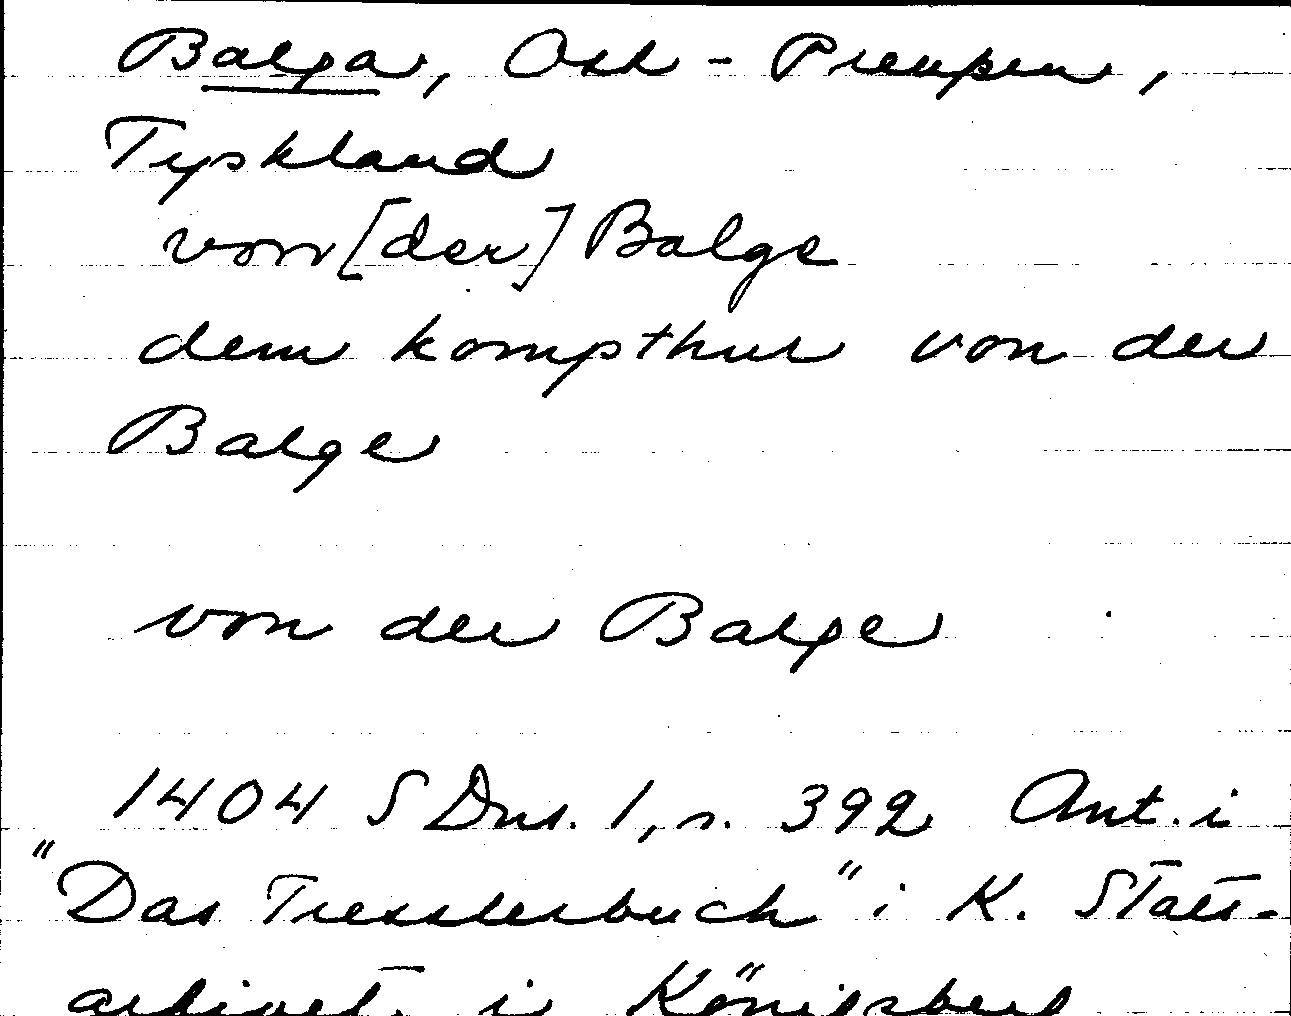 Balga, Ost-Preußen,
Tyskland
von [der] Balge
dem kompthur von der
Balge
von der Balge
1404 SDns. 1, s. 392 Ant. i
"Das Tresslerbuch" i K. Stats-
arkivet i Königsberg